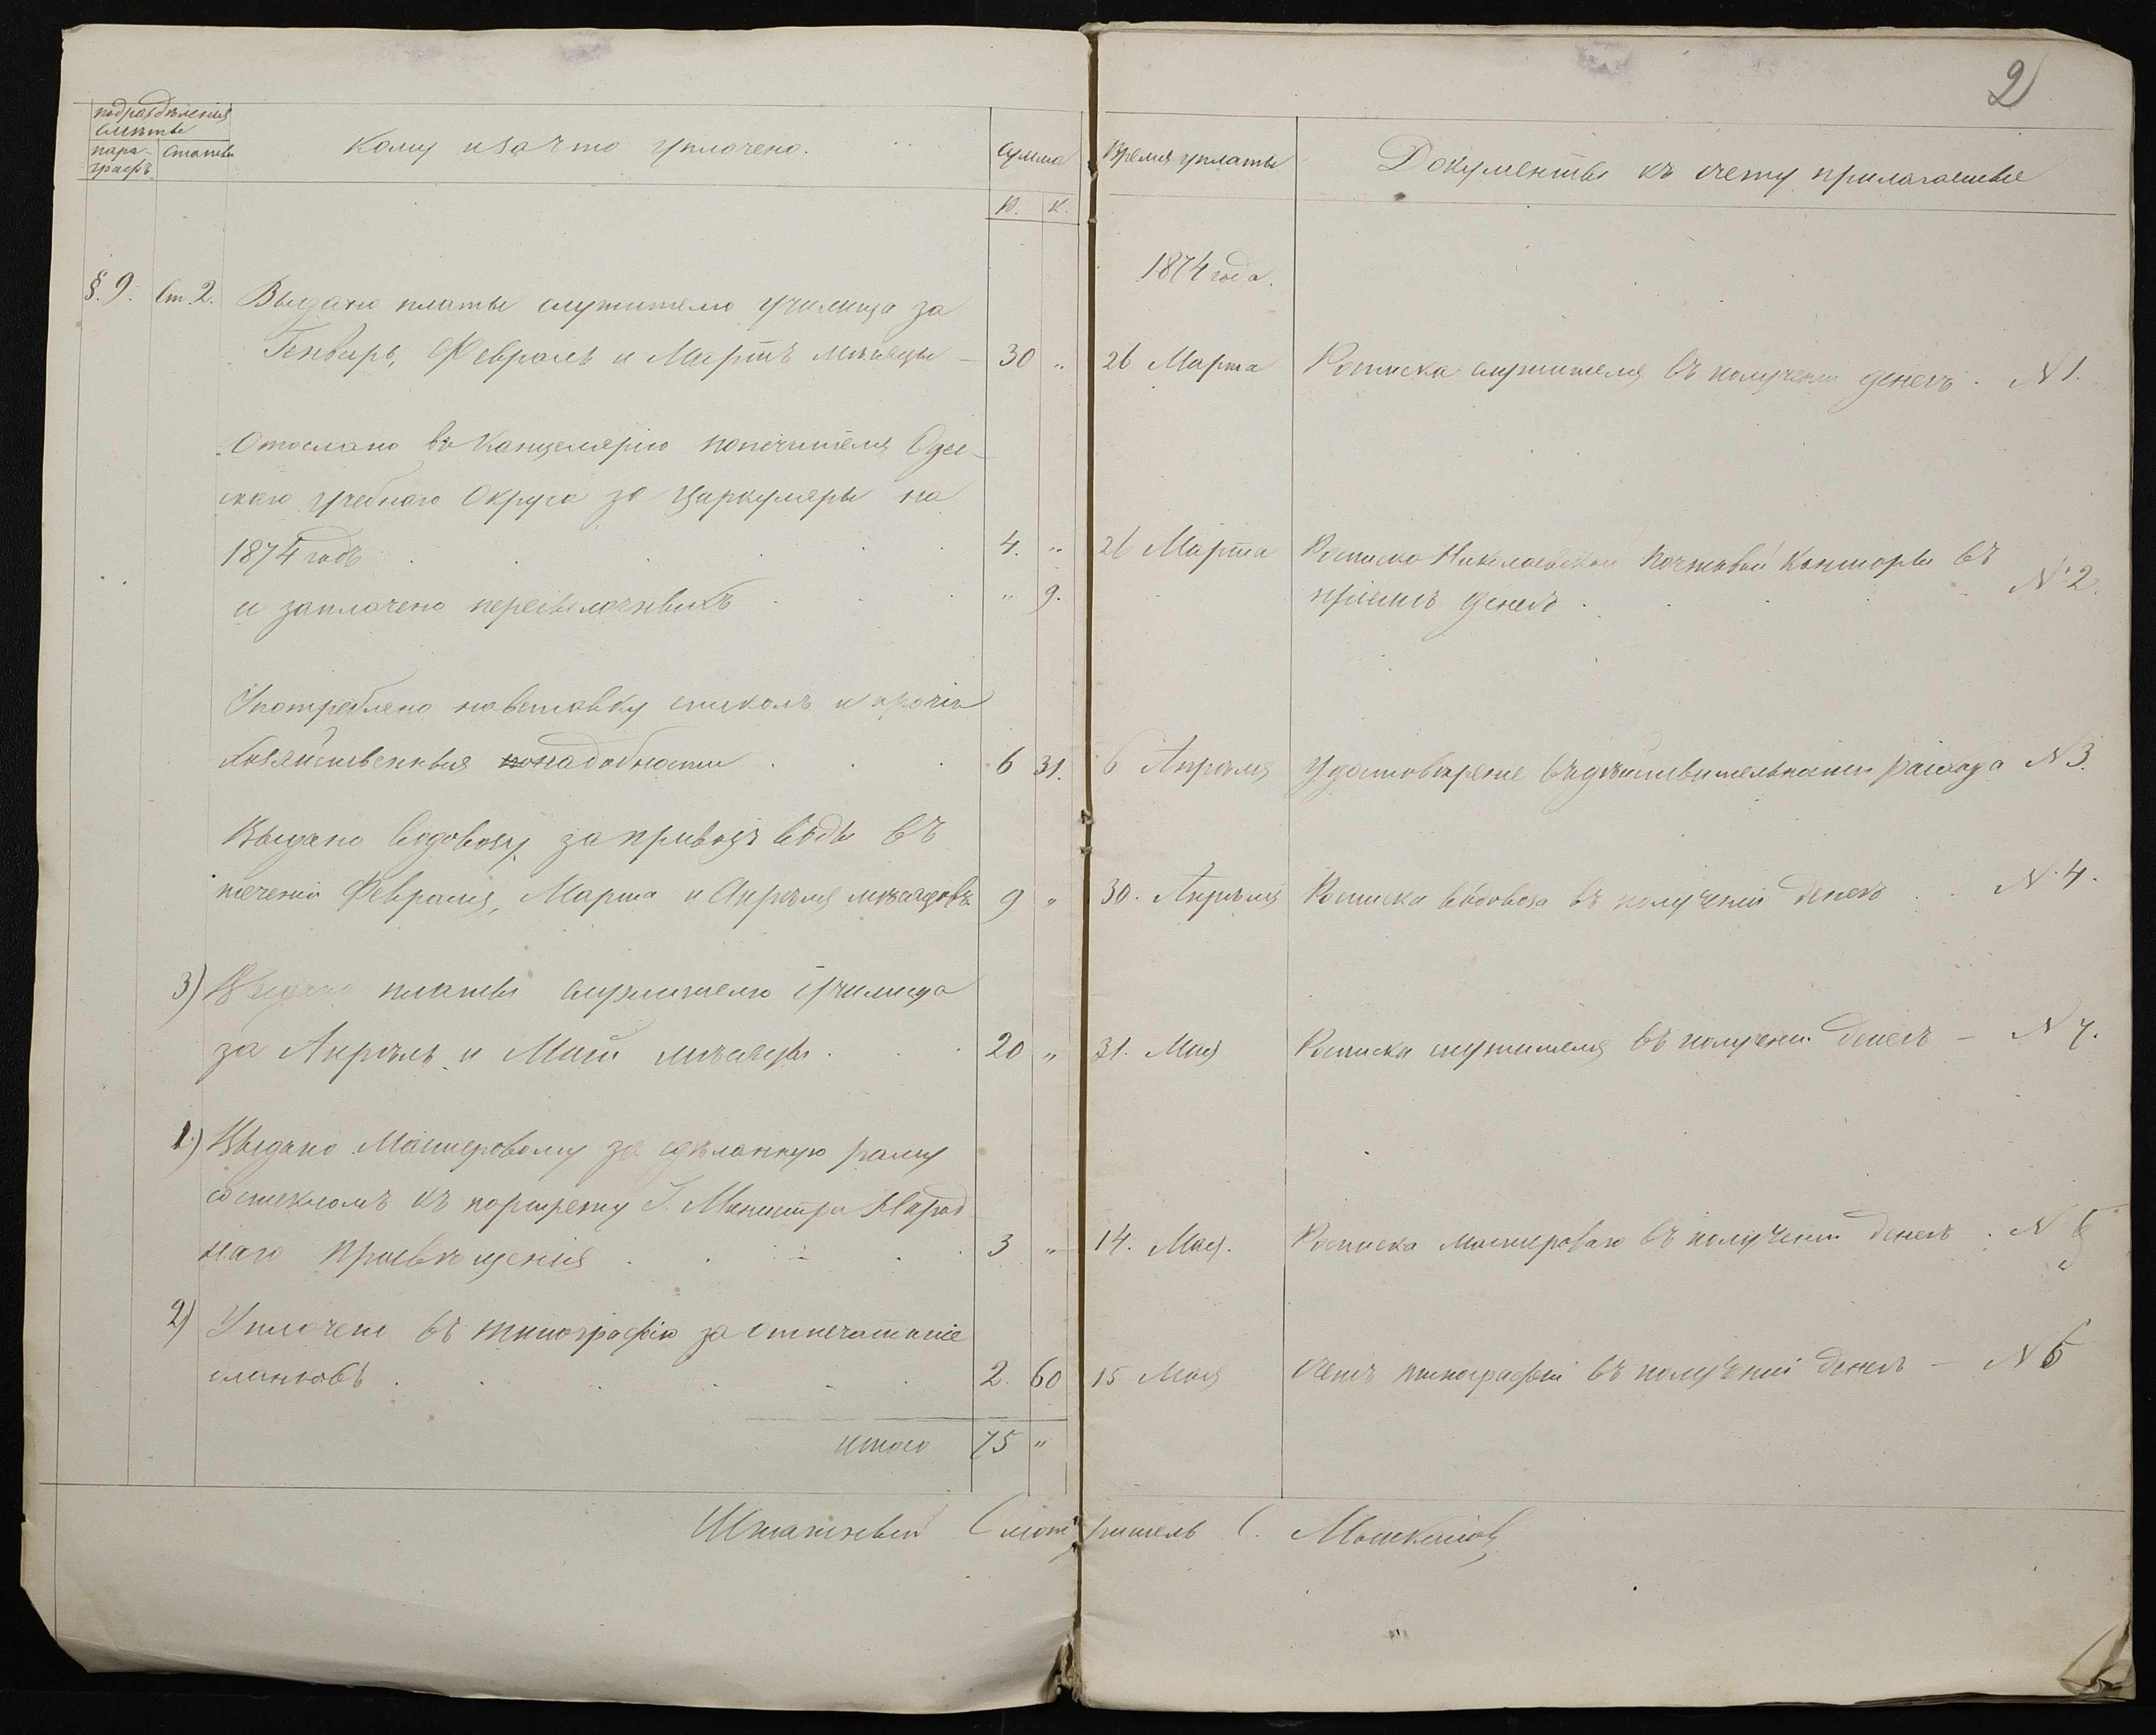 2
подраздѣленія
смѣты
пара-
графъ
Статьи
Кому и за что уплочено.
Сумма
Р. К.
Время уплаты
Документы къ счету прилагаемые
1874 года.
§. 9. Ст. 2. Выдано платы служителю училища за
Генварь, Февраль и Мартъ мѣсяцы – 30 „ 26 Марта Росписка служителя въ получении денегъ . N 1.
Отослано въ Канцелярію попечителя Одес-
скаго учебнаго Округа за Циркуляры на
1874 годъ . . . . 4. „ 26 Марта Росписка Николаевской Почтовой Конторы въ
и заплочено пересылочныхъ . . . „ 9. пріемѣ денегъ . . . . N 2.
Употреблено на вставку стеколъ и прочія
хозяйственныя надобности . . . 6 31. 6 Апрѣля Удостовѣреніе въ дѣйствительности расхода N 3.
Выдано водовозу за привозъ воды въ
теченіи Февраля, Марта и Апрѣля мѣсяцовъ 9 „ 30. Апрѣля Росписка водовоза въ полученіи денегъ . . N. 4.
3) Выдано платы служителю училища
за Апрѣль и Май мѣсяцы . . . 20 „ 31. Мая Росписка служителя въ получении денегъ – N 7.
1.) Выдано Мастеровому за сдѣланную раму
со стекломъ къ портрету Г. Министра Народ
наго Просвѣщенія . . . . 3 „ 14. Мая. Росписка мастероваго въ получении денегъ . N 5
2) Уплочено въ типографію за отпечатаніе
бланковъ . . . . . 2. 60 15 Мая Счетъ типографіи въ полученіи денегъ – N 6
итого 75 „
Штатный Смотритель С.